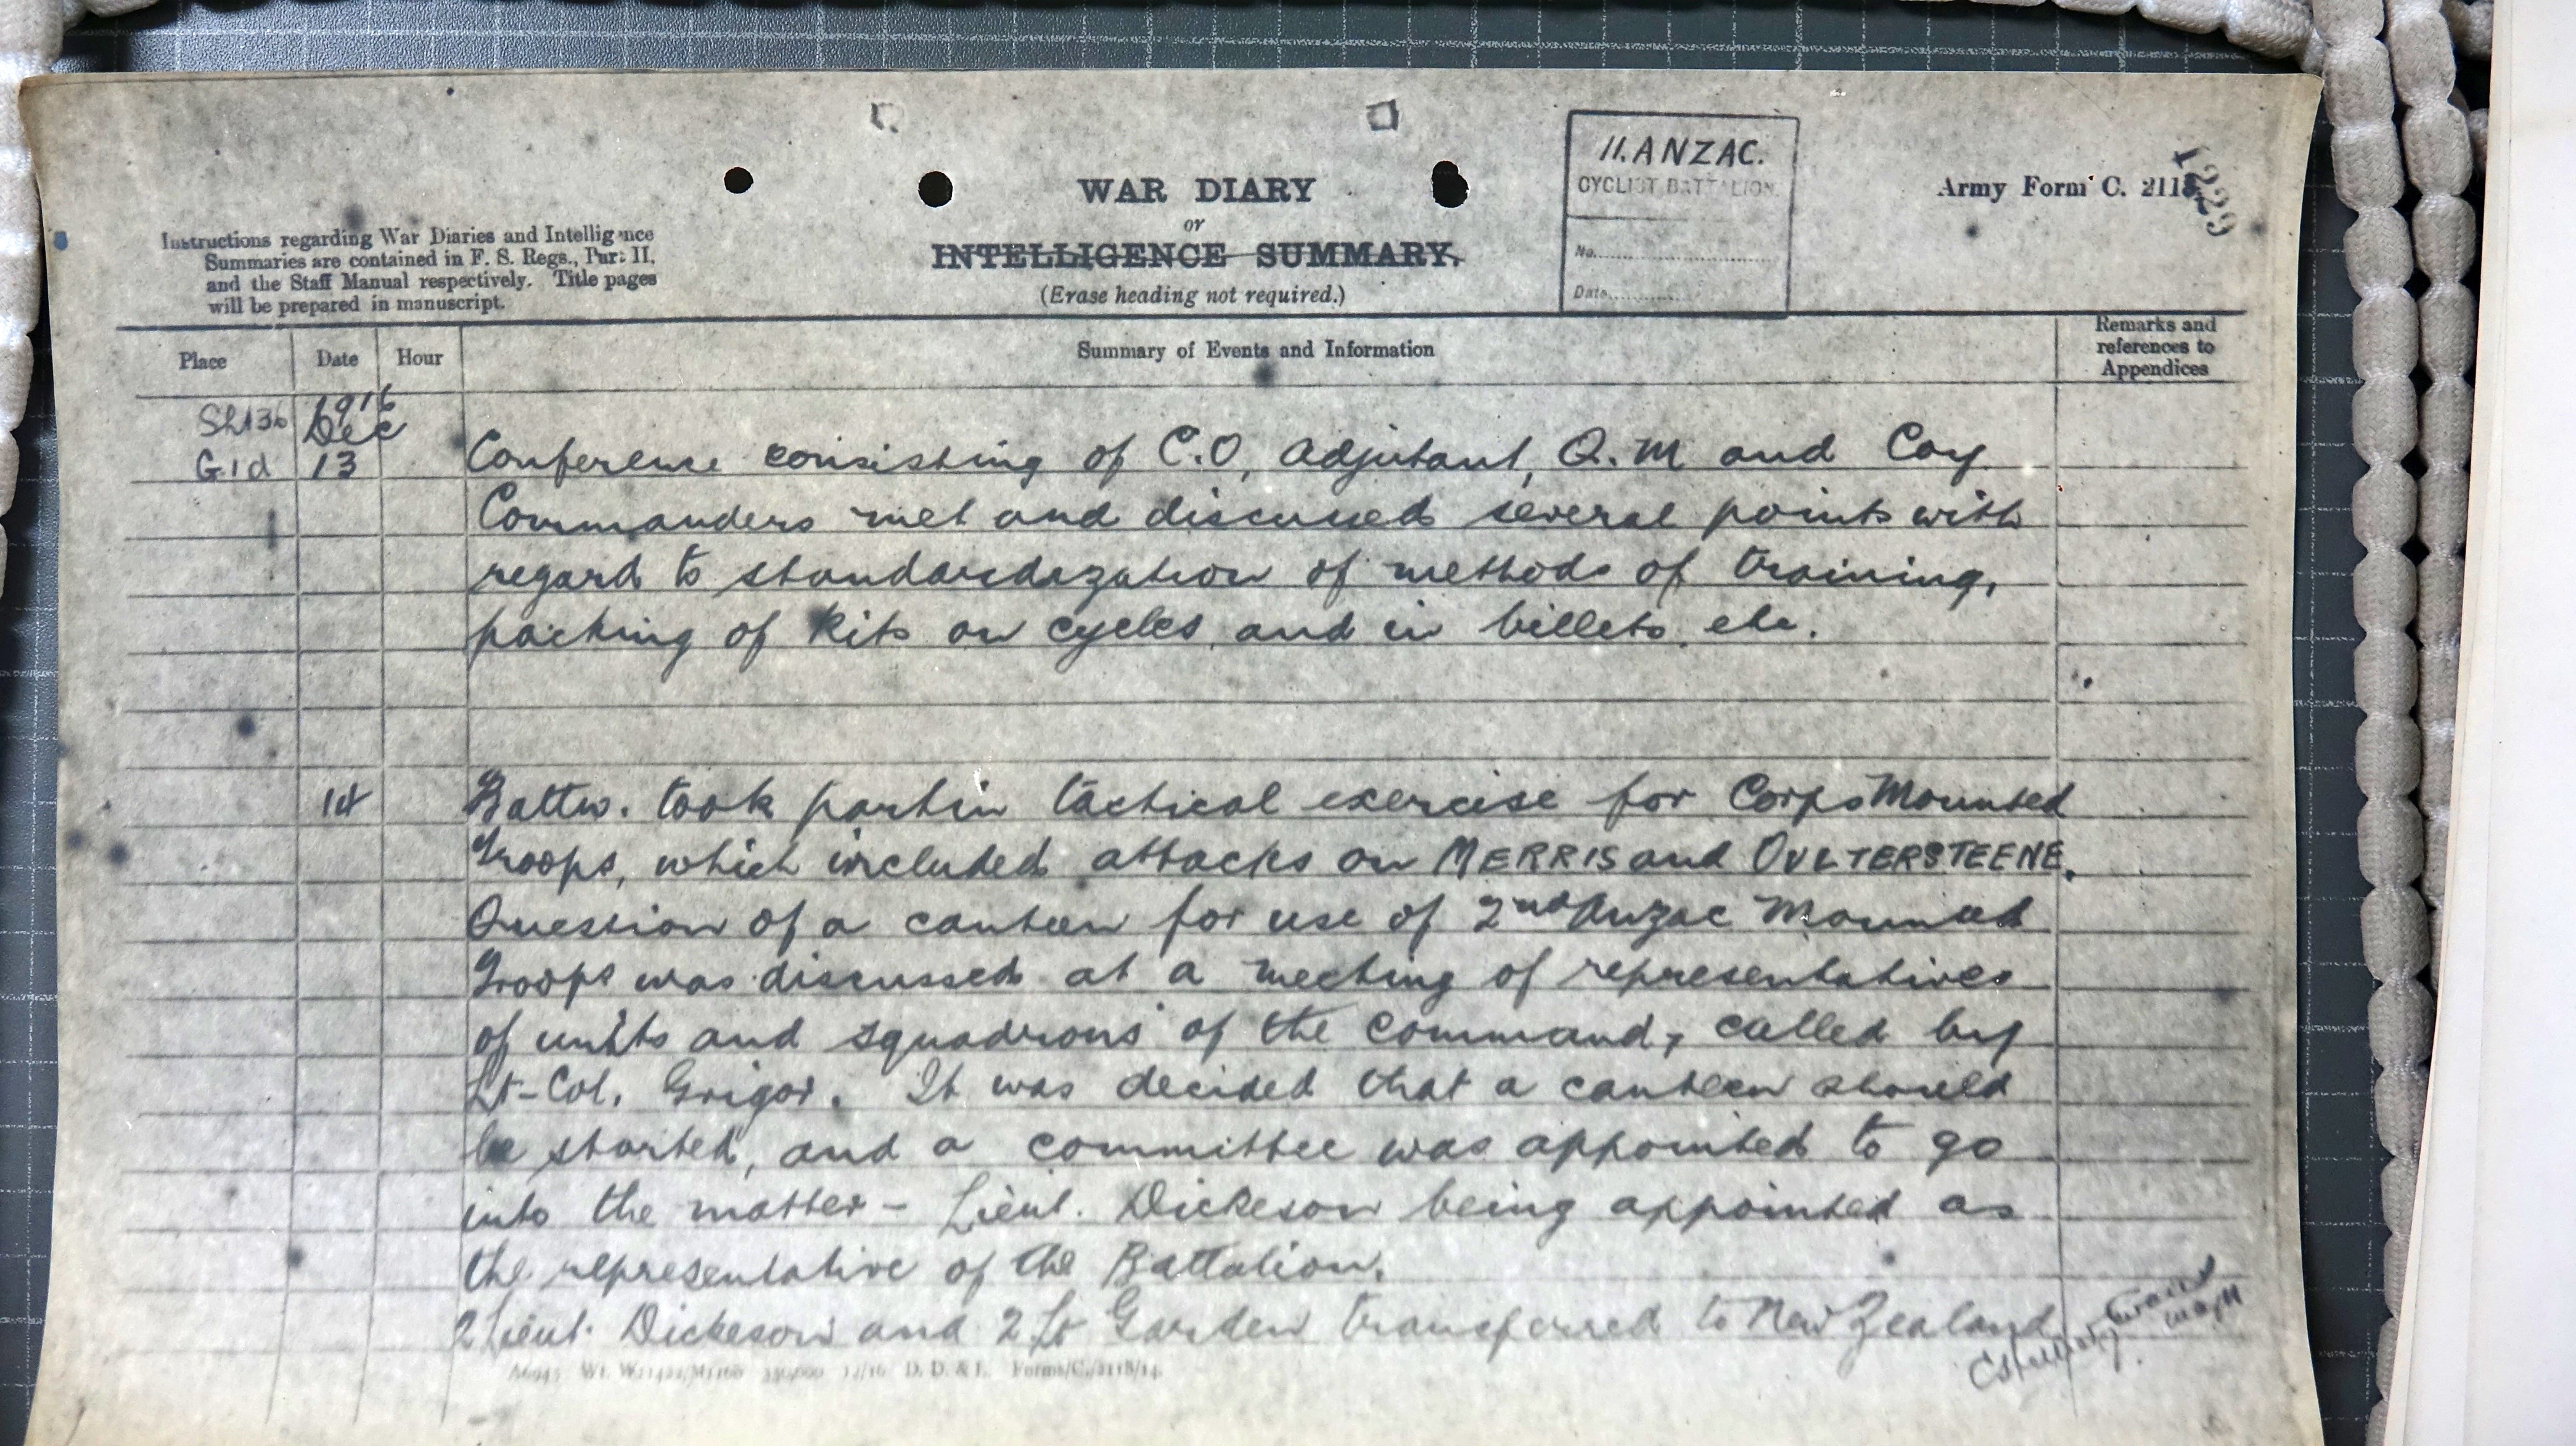 II. ANZAC.
CYCLIST BATTALION.
No.
Date
1229
WAR DIARY
or
INTELLIGENCE SUMMARY.
(Erase heading not required.)
Army Form C. 2118
Instructions regarding War Diaries and Intelligence
Summaries are contained in F. S. Regs., Part II,
and the Staff Manual respectively. Title pages
will be prepared in manuscript.
Place Date Hour Summary of Events and Information Remarks and
references to
Appendices
Sh136 1916
Dec
G1d 13 Conference consisting of C.O, Adjutant, Q.M and Coy
Commanders met and discussed several points with
regard to standardazation of methods of training,
packing of Kits on cycles, and in billets, etc.
14 Battn. took part in tactical exercise for Corps Mounted
Troops, which included attacks on MERRIS and OULTERSTEENE.
Question of a canteen for use of 2nd Anzac Mounted
Troops was discussed at a meeting of representatives
of units and squadrons of the command, called by
Lt-Col. Grigor. It was decided that a canteen should
be started, and a committee was appointed to go
into the matter - Lieut. Dickeson being appointed as
the representative of the Battalion.
2 Lieut. Dickeson and 2 Lt Garden transferred to New Zealand
Major
D. D. & L. Forms/C./2118/14.